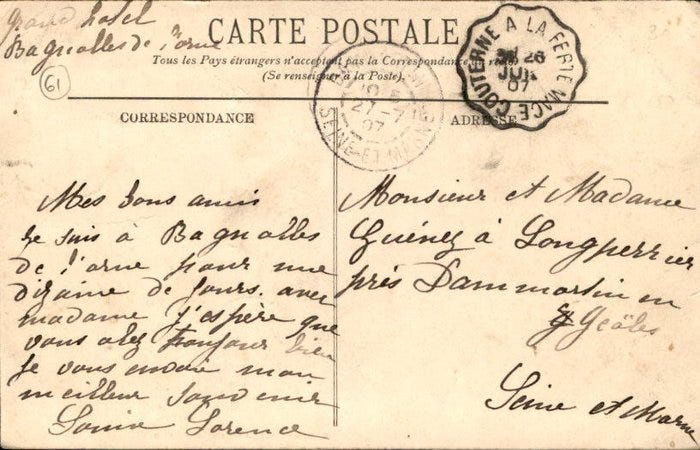 grand hotel
Bagnolles de l'orne
61
CARTE POSTALE
Tous les Pays étrangers n'acceptent pas la Correspondance au recto
(Se renseigner à la Poste).
COUTERNE A LA FERTE MACE
26
JUI
07
27-7
07
SEINE-ET-MARNE
CORRESPONDANCE
Mes bons amis
Je suis à Bagnolles
de l'orne pour une
dizaine de jours. avec
madame j'espère que
vous alez toujour bien
Je vous envoie mon
meilleur souvenir
Lorence
ADRESSE
Monsieur et Madame
Guénez à Longperrier
près Dammartin en
Göales
Seine et Marne